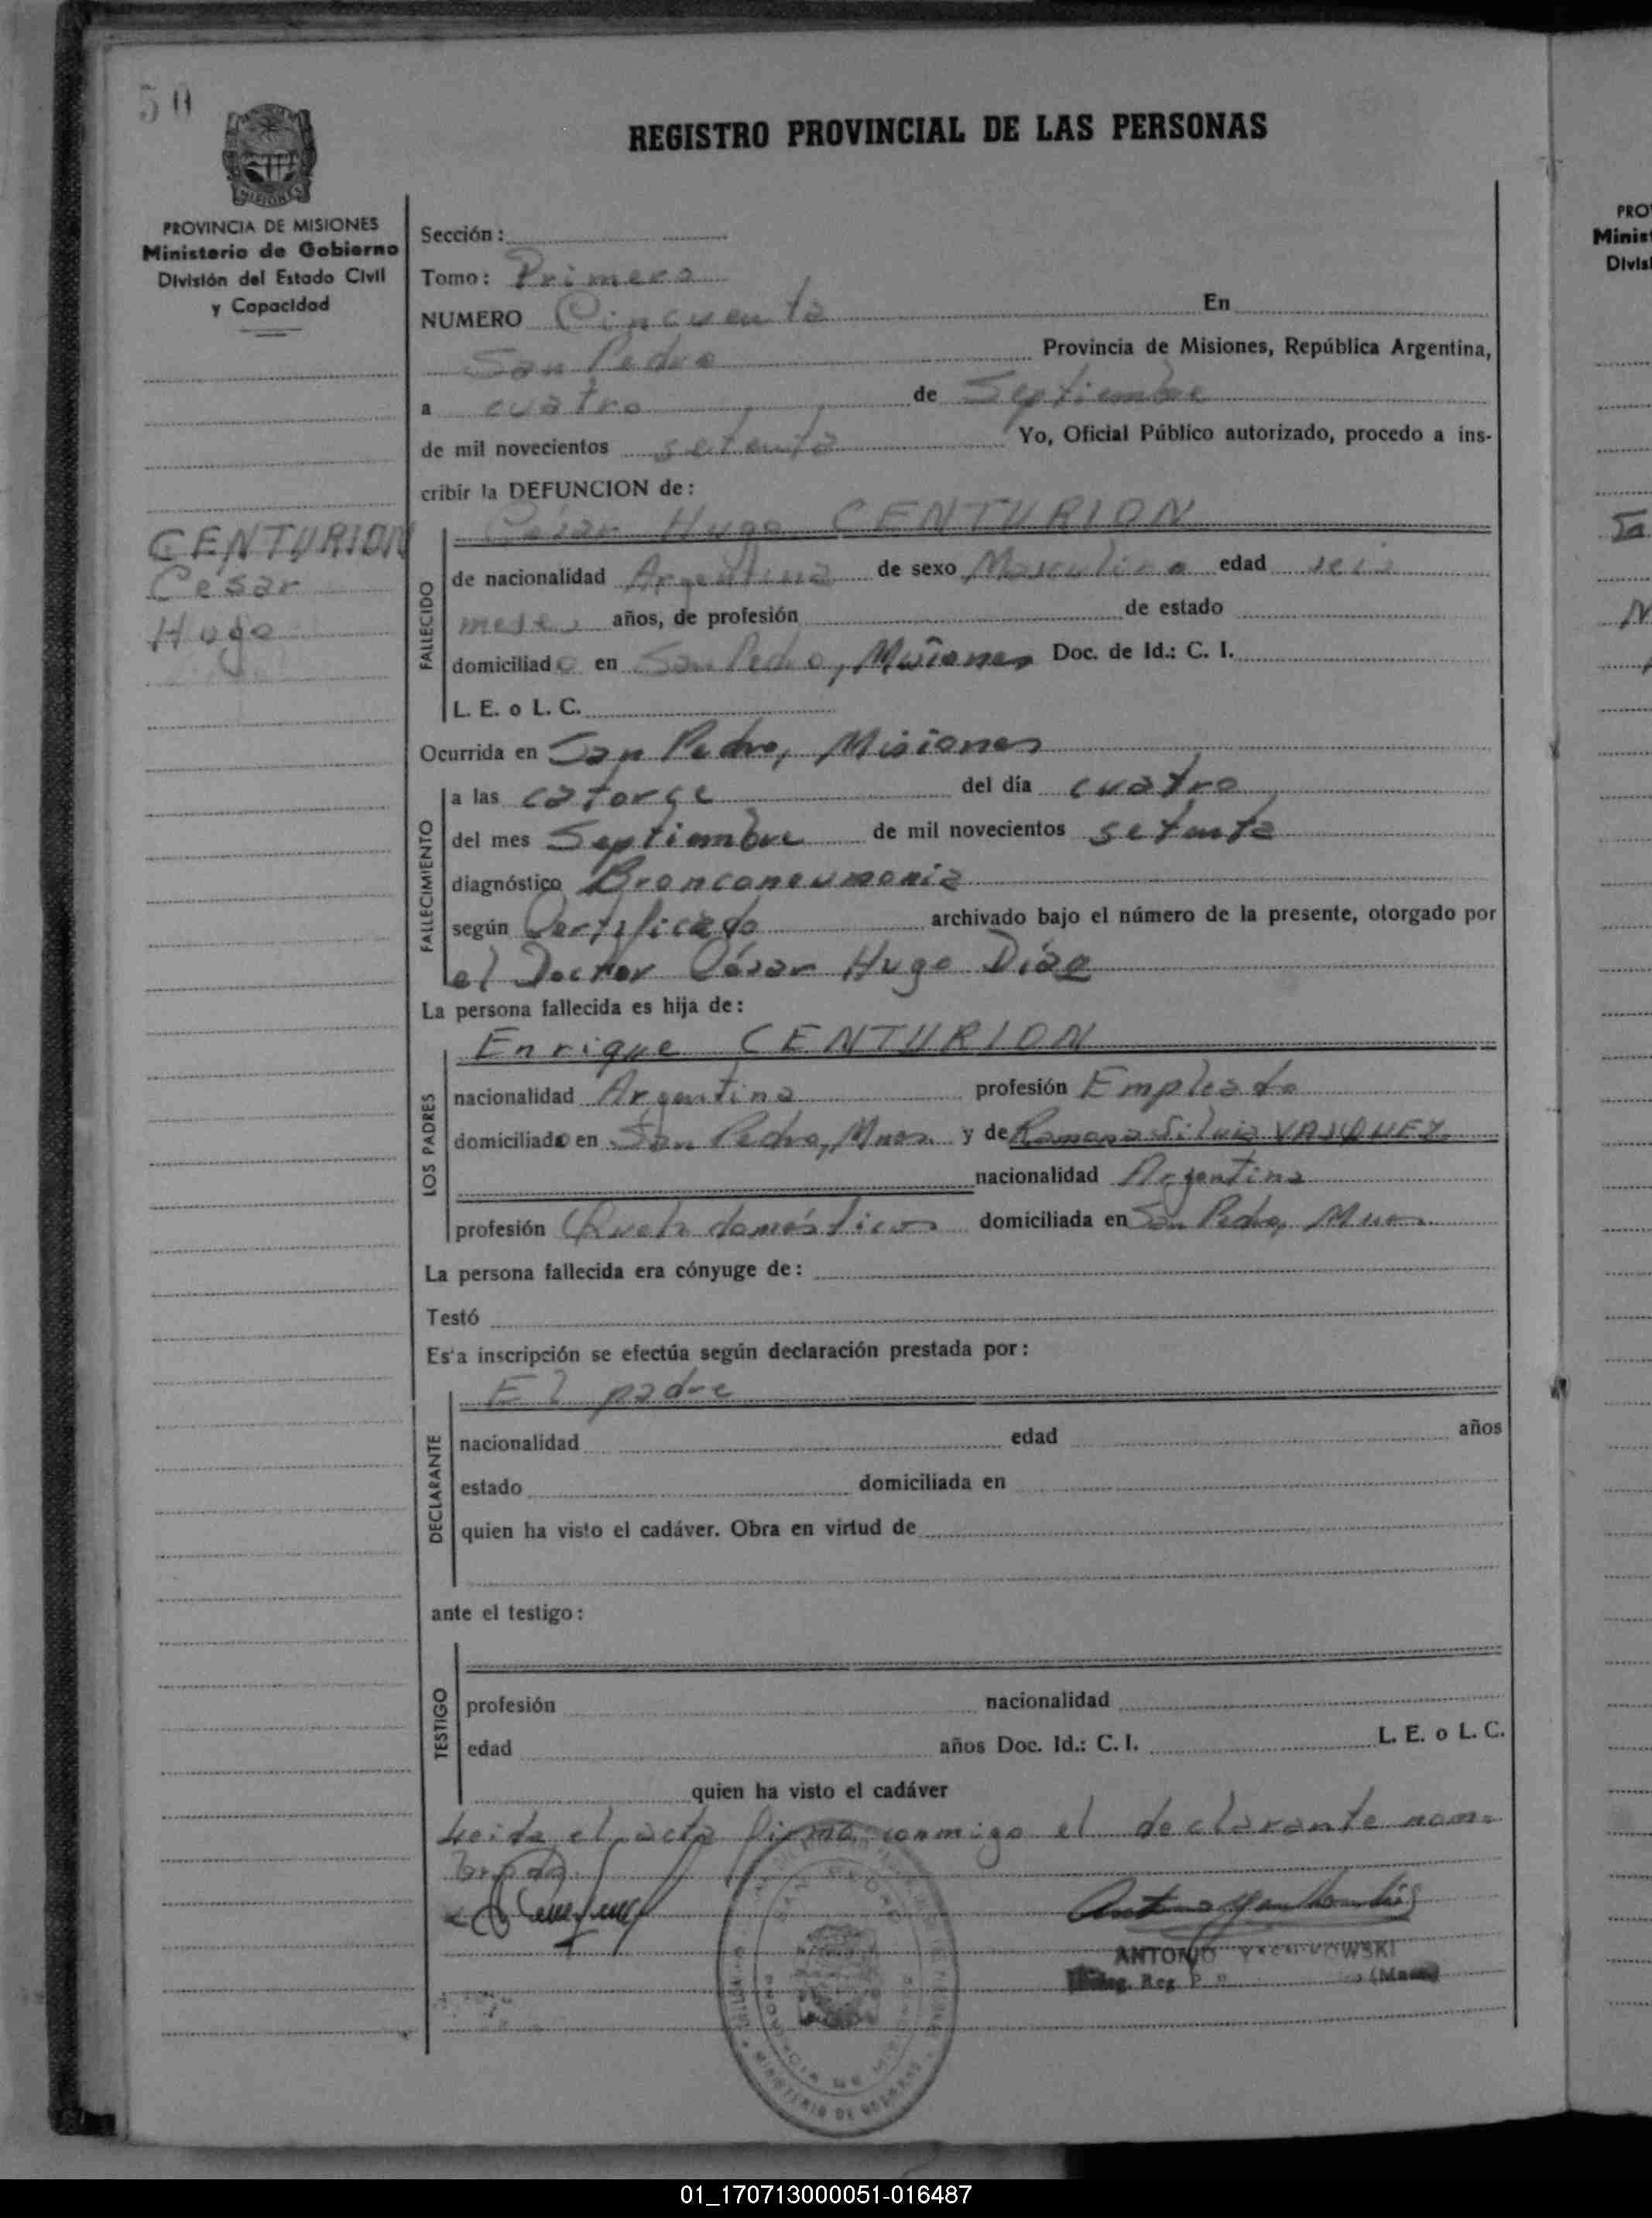 50
REGISTRO PROVINCIAL DE LAS PERSONAS
MISIONES
PROVINCIA DE MISIONES
Ministerio de Gobierno
División del Estado Civil
y Capacidad
CENTURION
César
Hugo
Sección:
Tomo: Primero
NUMERO Cincuenta En
San Pedro Provincia de Misiones, República Argentina,
a cuatro de Septiembre
de mil novecientos setenta Yo, Oficial Público autorizado, procedo a ins-
cribir la DEFUNCION de:
César Hugo CENTURION
FALLECIDO
de nacionalidad Argentina de sexo Masculino edad seis
meses años, de profesión de estado
domiciliado en San Pedro, Misiones Doc. de Id.: C. I.
L. E. o L. C.
Ocurrida en San Pedro, Misiones
FALLECIMIENTO
a las catorce del día cuatro
del mes Septiembre de mil novecientos setenta
diagnóstico Bronconeumonia
según Certificado archivado bajo el número de la presente, otorgado por
el Doctor César Hugo Díaz
La persona fallecida es hija de:
LOS PADRES
Enrique CENTURION
nacionalidad Argentina profesión Empleado
domiciliado en San Pedro, Mnes. y de Ramona Silvia VASQUEZ
nacionalidad Argentina
profesión Queh. domésticos domiciliada en San Pedro, Mnes.
La persona fallecida era cónyuge de:
Testó
Es'a inscripción se efectúa según declaración prestada por:
DECLARANTE
El padre
nacionalidad edad años
estado domiciliada en
quien ha visto el cadáver. Obra en virtud de
ante el testigo:
TESTIGO
profesión nacionalidad
edad años Doc. Id.: C. I. L. E. o L. C.
quien ha visto el cadáver
Leida el acta firma conmigo el declarante nom-
brado.
ANTONIO
Reg. (Mnes)
PROVINCIA DE MISIONES
MINISTERIO DE GOBIERNO
PRO
Minist
Divisi
01_170713000051-016487